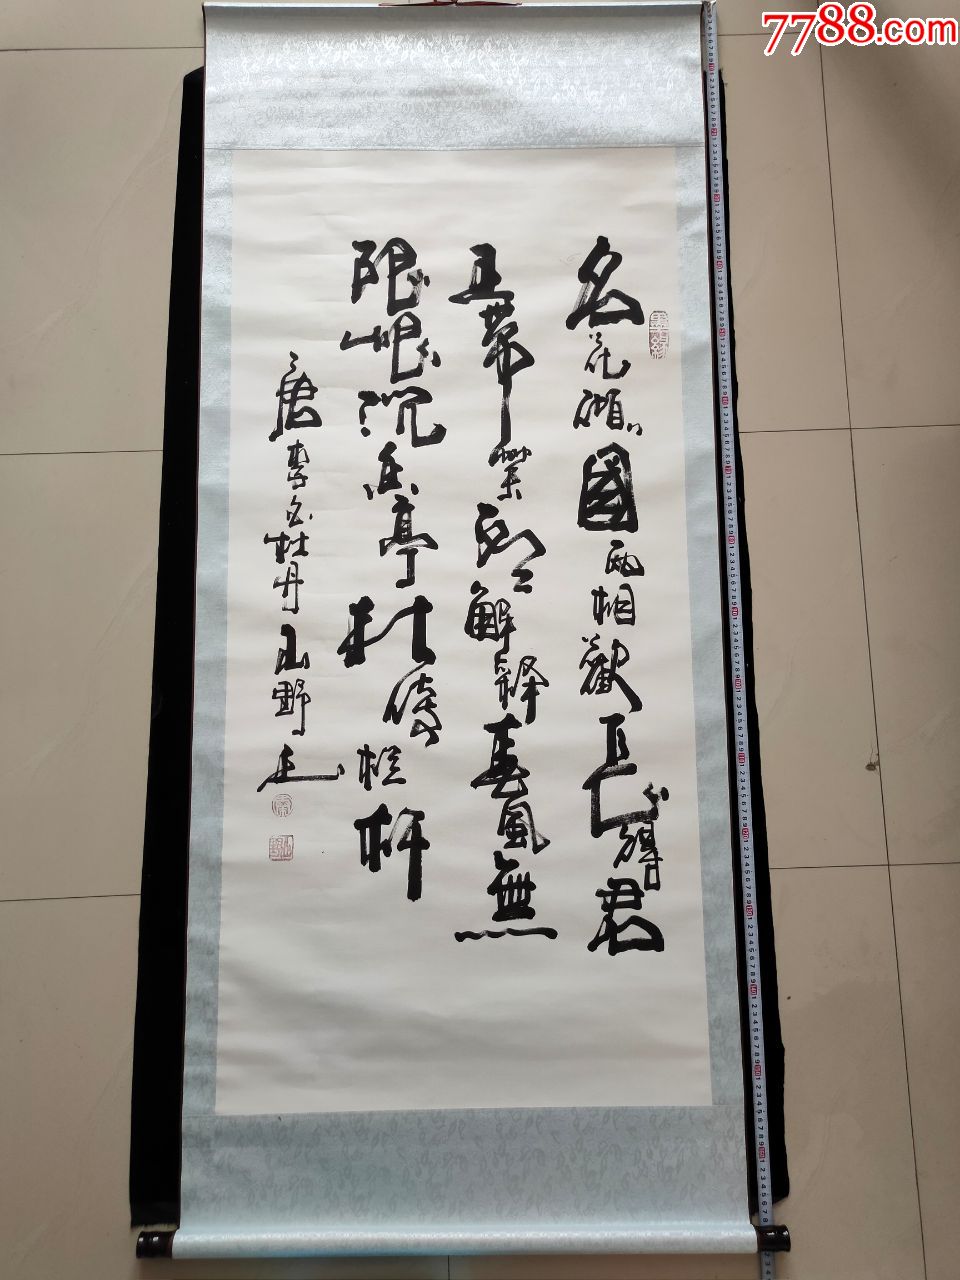 7788.com
名花傾國兩相歡長得君
王帶笑看解釋春風無
限恨沉香亭北倚栏杆
唐李白牡丹山野